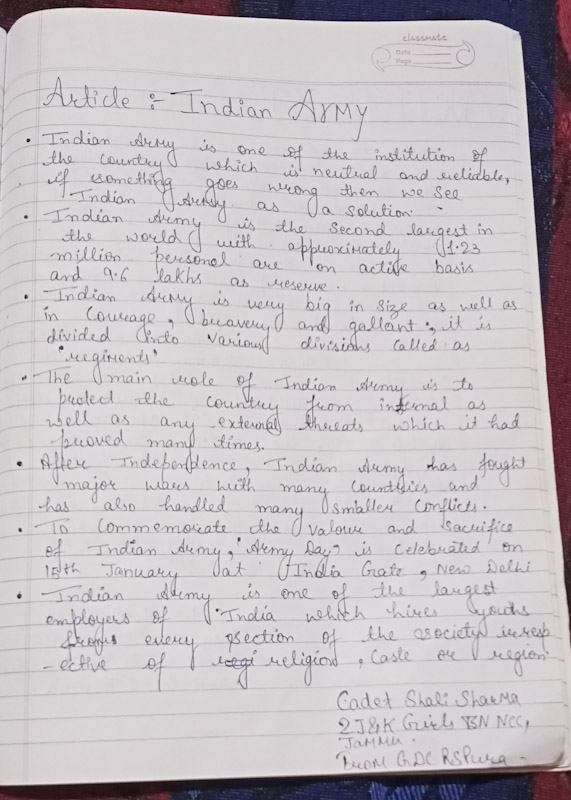 classmate
Date
Page
Article :- Indian Army
• Indian Army is one of the institution of
the country which is neutral and reliable,
if something goes wrong then we see
Indian Army as a solution.
• Indian Army is the second largest in
the world with approximately 1.23
million personal are on active basis
and 9.6 lakhs as reserve.
• Indian Army is very big in size as well as
in courage, bravery and gallant, it is
divided into various divisions called as
"regiments"
• The main role of Indian Army is to
protect the country from internal as
well as any external threats which it had
proved many times.
• After Independence, Indian Army has fought
major wars with many countries and
has also handled many smaller conflicts.
• To commemorate the valour and sacrifice
of Indian Army, "Army Day" is celebrated on
15th January at India Gate, New Delhi
• Indian Army is one of the largest
employers of India which hires youths
from every section of the society irresp
-ective of religion, caste or region.
Cadet Shali Sharma
2 J&K Girls BN NCC,
Jammu.
From GDC RSPura -